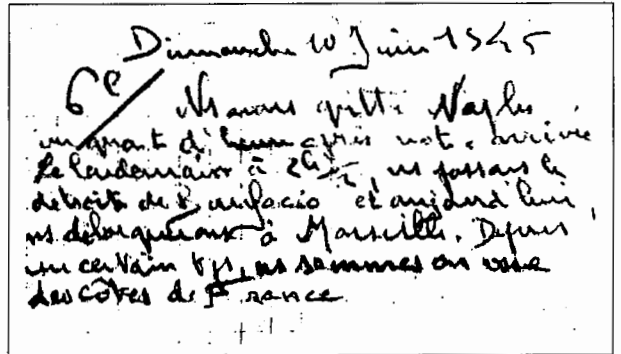 Dimanche 10 Juin 1945
6e/
Ns avons quitté Naples
un quart d'heure après notre arrivée
Le lendemain à 2h 1/2, ns passons le
détroit de Bonifacio et aujourd'hui
ns débarquerons à Marseille. Depuis
un certain tps, ns sommes en vue
des côtes de France.